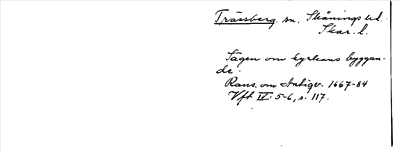 Trässberg sn. Skånings hd.
Skar. l.
Sägen om kyrkans byggan-
de.
Rans. om Antiqv. 1667-84
Vft IV: 5-6, s. 117.